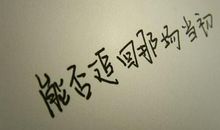 能否追回那场当初